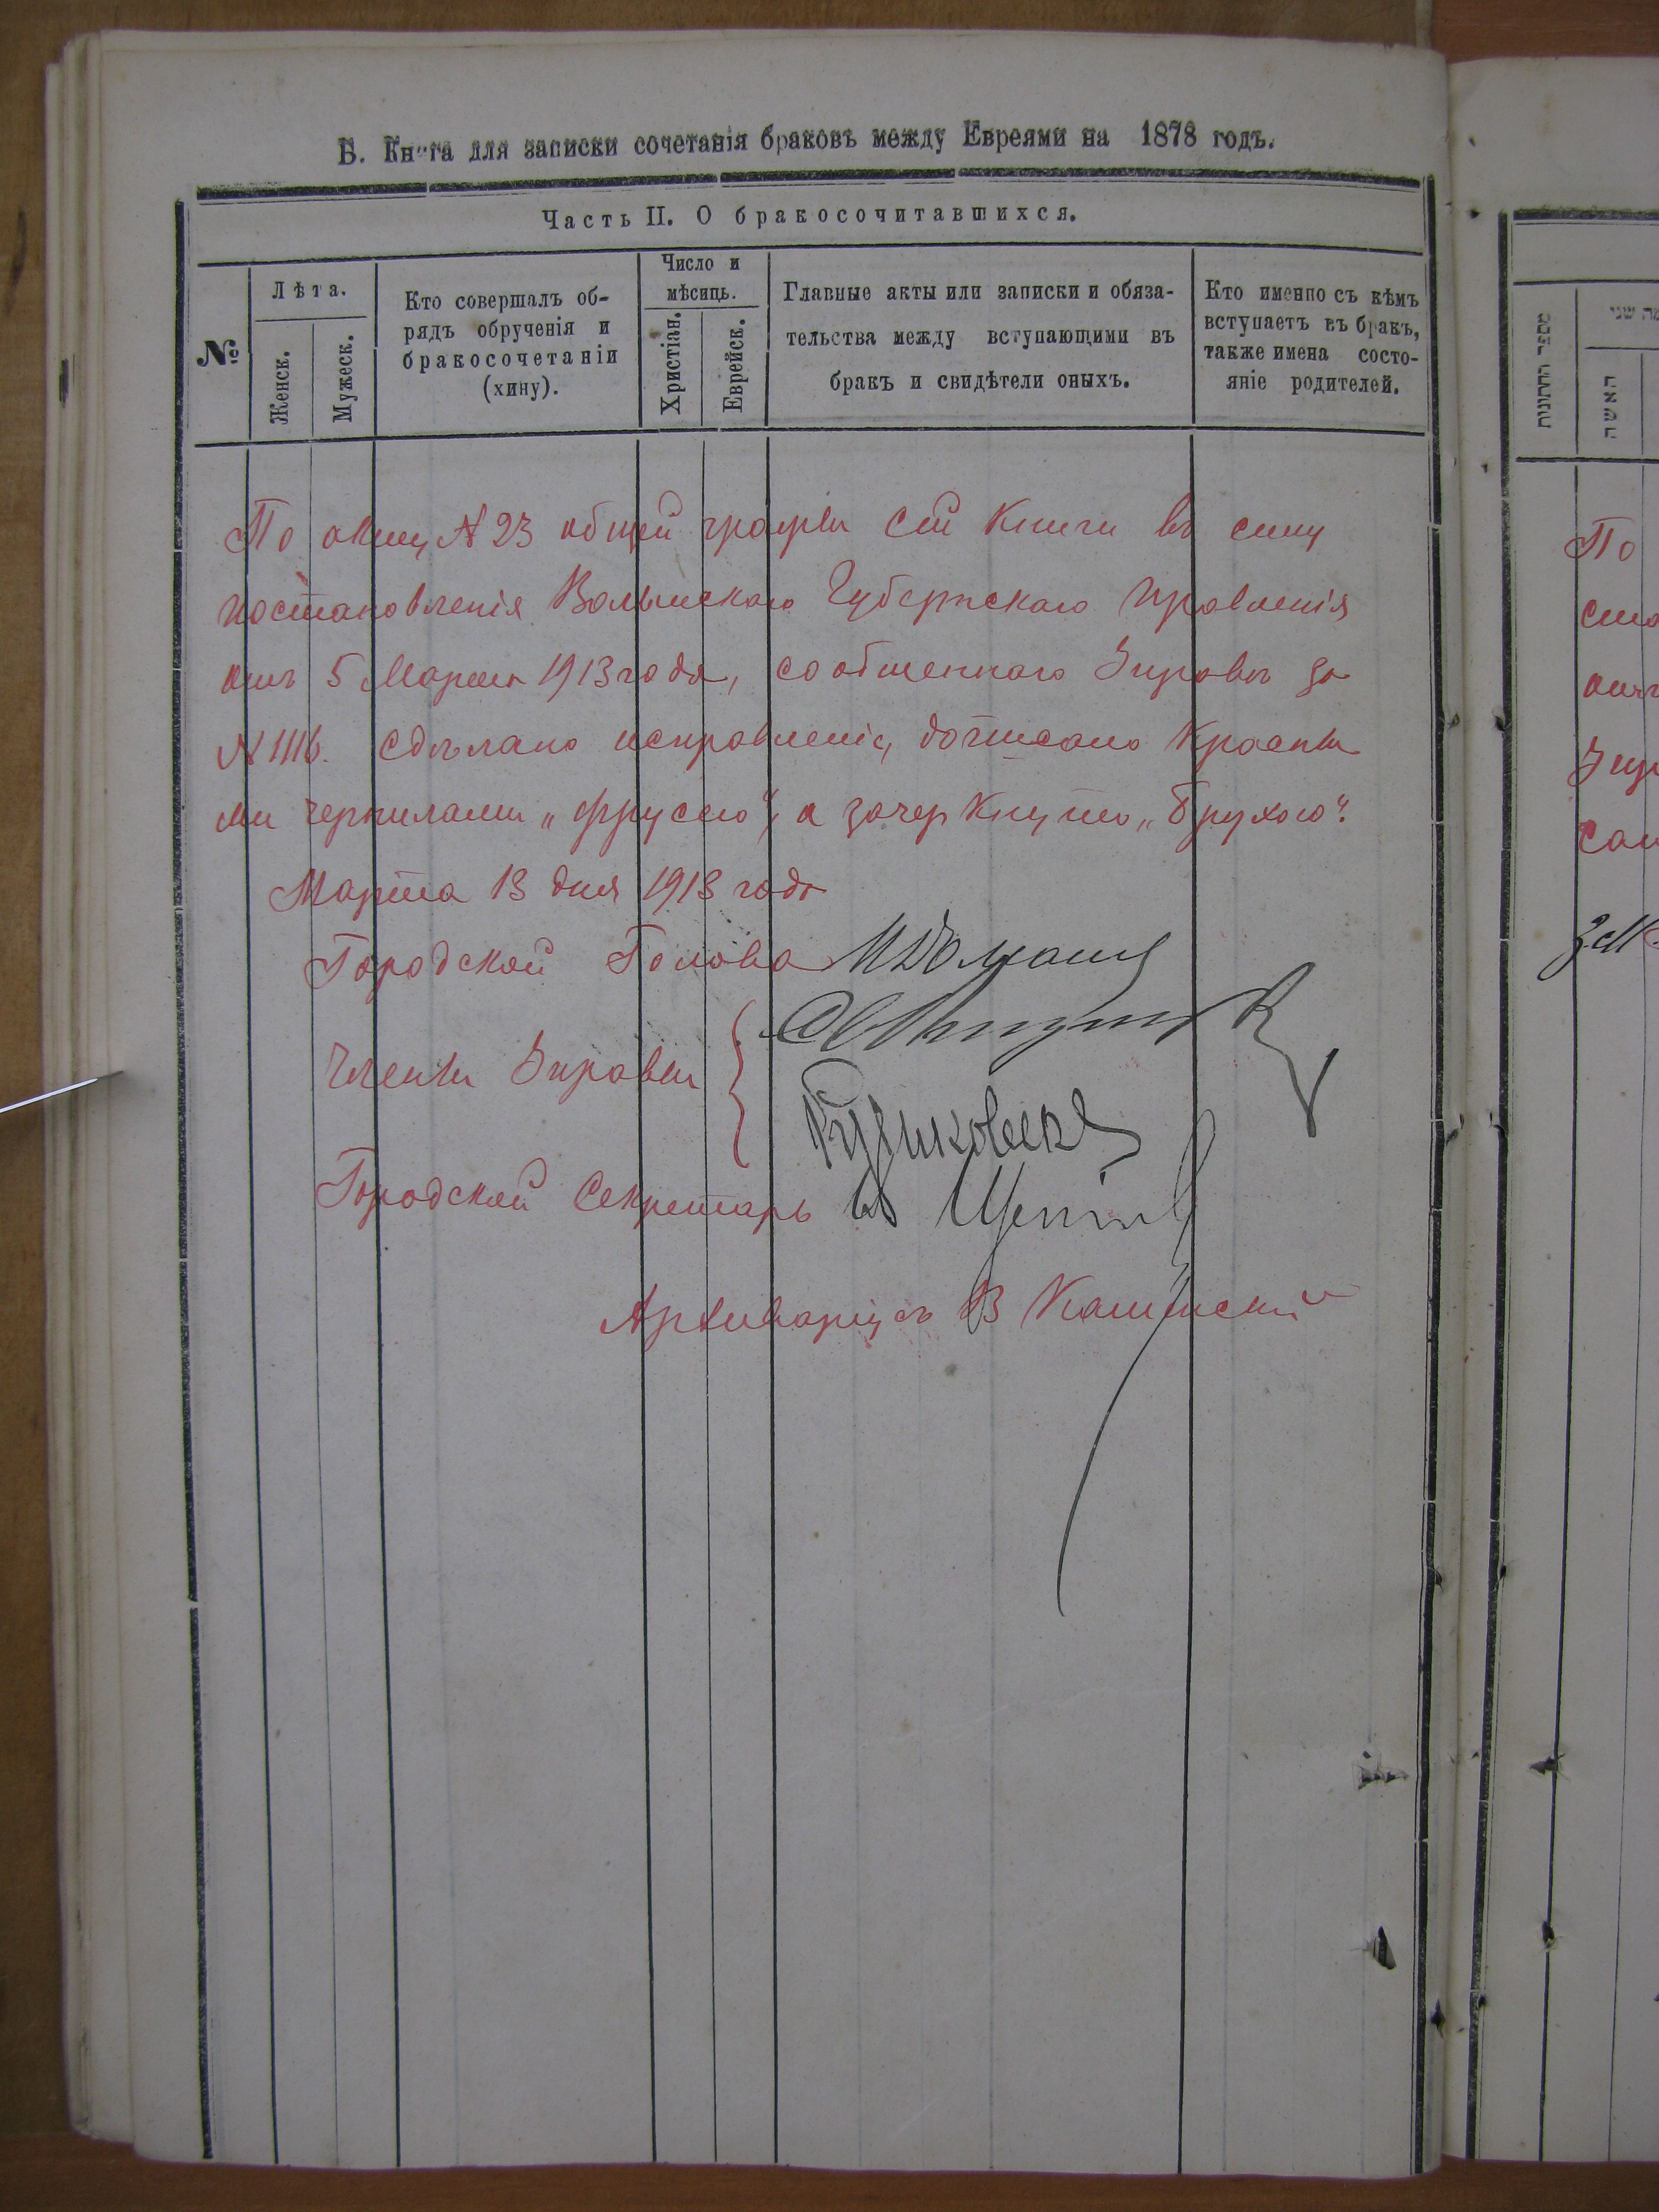 Б. Книга для записки сочетанія браковъ между Евреями на 1878 годъ.
Часть II. О бракосочитавшихся.
№
Лѣта.
Женск.
Мужеск.
Кто совершалъ об-
рядъ обрученія и
бракосочетаніи
(хину).
Число и
мѣсиць.
Христіан.
Еврейск.
Главные акты или записки и обяза-
тельства между вступающими въ
бракъ и свидѣтели оныхъ.
Кто именно съ кѣмъ
вступаетъ въ бракъ,
также имена состо-
яніе родителей.
По акту № 23 общей графы сей книги въ силу
постановленія Волынскаго Губернскаго Правленія
отъ 5 Марта 1913 года, сообщеннаго Управѣ за
№ 1116. сдѣлано исправленіе, дописано красны
ми чернилами „Фруссю", а зачеркнуто „Брухою".
Марта 13 дня 1913 года
Городской Голова
Члены Управы
Городской Секретарь
Архиваріусъ В
האשה
По